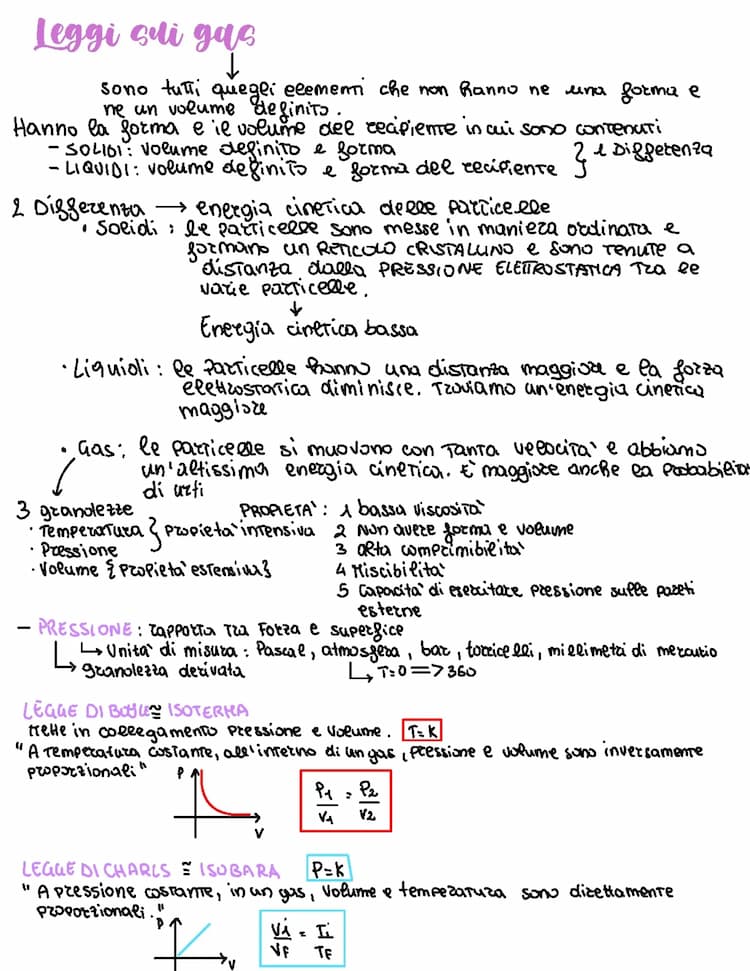 Leggi sui gas
sono tutti quegli elementi che non hanno ne una forma e
ne un volume definito.
Hanno la forma e il volume del recipiente in cui sono contenuti
- SOLIDI: volume definito e forma
- LIQUIDI: volume definito e forma del recipiente } 1 Differenza
2 Differenza → energia cinetica delle particelle
• Solidi: le particelle sono messe in maniera ordinata e
formano un RETICOLO CRISTALLINO e sono tenute a
distanza dalla PRESSIONE ELETTROSTATICA tra le
varie particelle.
↓
Energia cinetica bassa
• Liquidi: le particelle hanno una distanza maggiore e la forza
elettrostatica diminisce. Troviamo un'energia cinetica
maggiore
• Gas: le particelle si muovono con tanta velocità e abbiamo
un'altissima energia cinetica. E' maggiore anche la probabilità
di urti
3 grandezze
• Temperatura } propietà intensiva
• Pressione
• Volume {propietà estensiva}
PROPIETÀ: 1 bassa viscosità
2 Non avere forma e volume
3 alta comprimibilità
4 Miscibilità
5 Capacità di esercitare pressione sulle pareti
esterne
- PRESSIONE: rapporto tra Forza e superfice
↳ Unità di misura: Pascal, atmosfera, bar, torricelli, millimetri di mercurio
↳ grandezza derivata
↳ T=0 => 360
LEGGE DI BOYLE ≅ ISOTERMA
mette in collegamento pressione e volume. T=K
"A temperatura costante, all'interno di un gas, pressione e volume sono inversamente
proporzionali"
P
V
P1/V1 = P2/V2
LEGGE DI CHARLS ≅ ISOBARA P=K
"A pressione costante, in un gas, volume e temperatura sono direttamente
proporzionali."
P
V
Vi/VF = Ti/TF